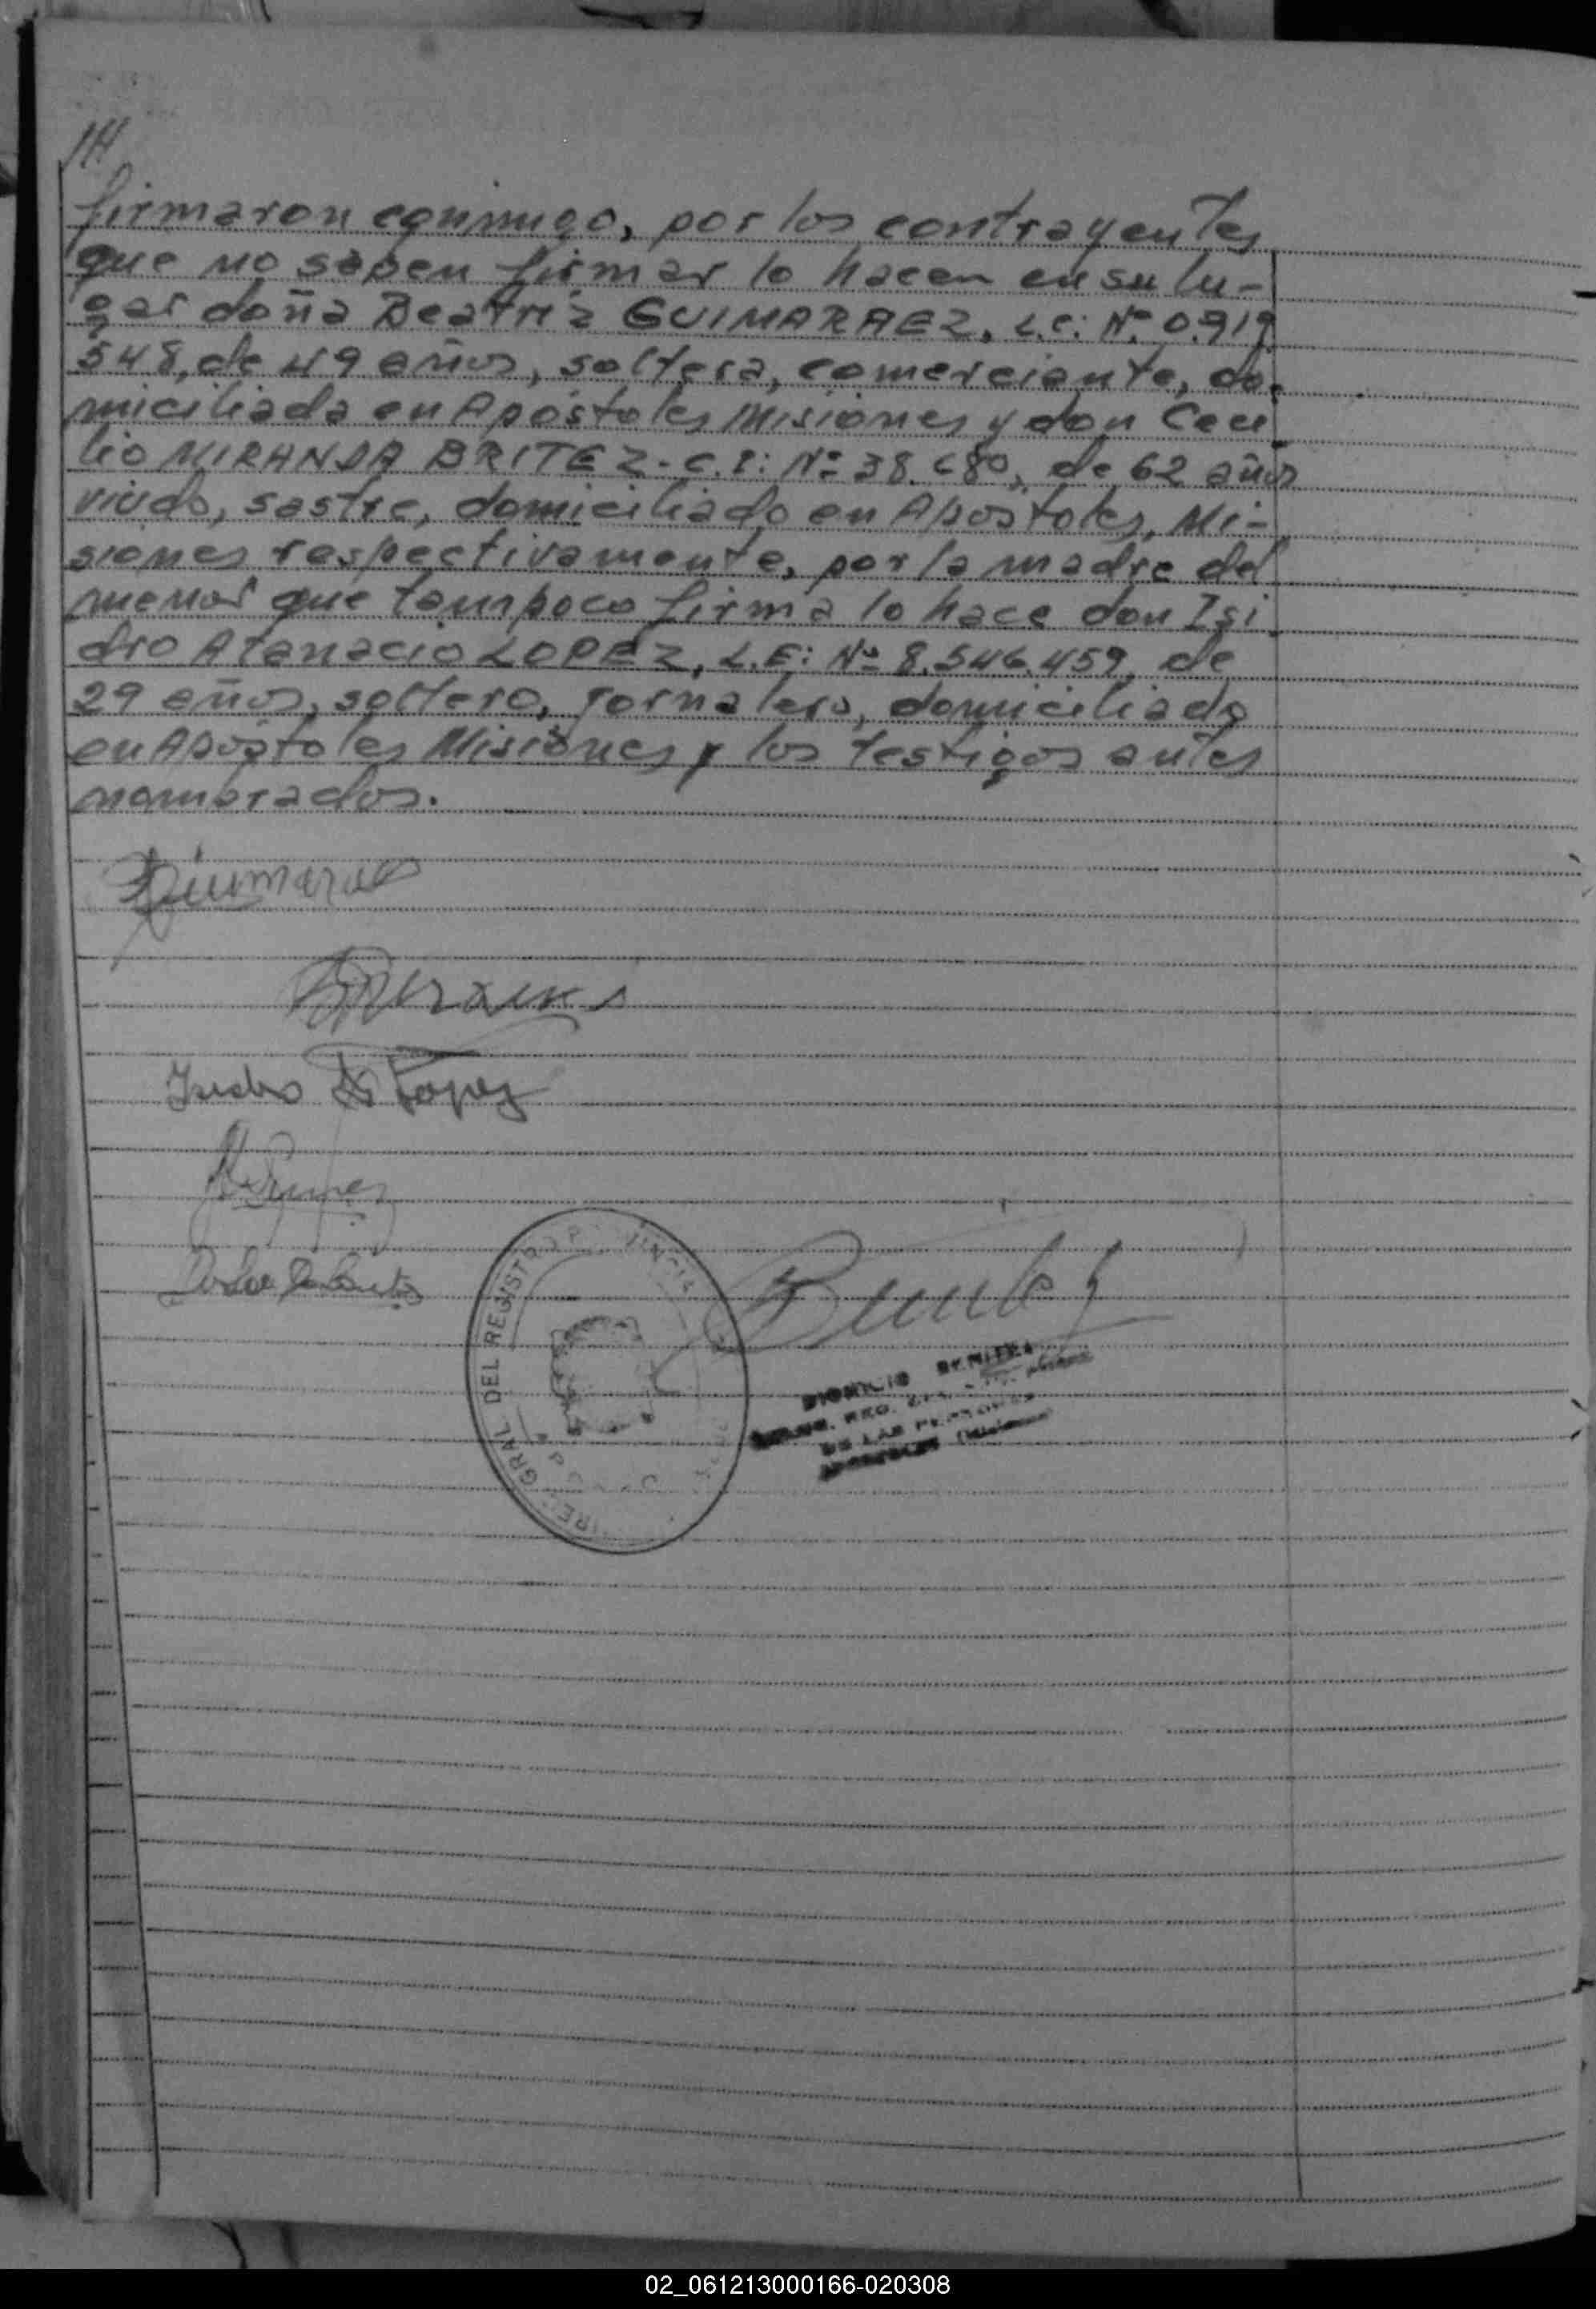 firmaron conmigo, por los contrayentes
que no saben firmar lo hacen en su lu-
gar doña Beatriz GUIMARAEZ, L.C: Nº 0.919
548, de 49 años, soltera, comerciante, do-
miciliada en Apóstoles Misiones y don Ceci
lio MIRANDA BRITEZ - C.I: Nº 38.680, de 62 años
viudo, sastre, domiciliado en Apóstoles, Mi-
siones respectivamente, por la madre del
menor que tampoco firma lo hace don Isi
dro Atanacio LOPEZ, L.E: Nº 8.546.459, de
29 años, soltero, jornalero, domiciliado
en Apóstoles Misiones y los testigos antes
nombrados.
Isidro A Lopez
GRAL DEL REGISTRO
BENITEZ
DE LAS PERSONAS
02_061213000166-020308